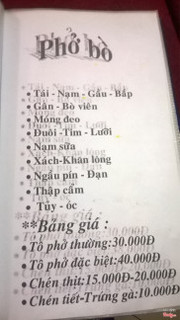 Phở bò
• Tái - Nạm - Gầu - Bắp
• Gân - Bò viên
• Móng đeo
• Đuôi - Tim - Lưỡi
• Nạm sữa
• Xách - Khăn lông
• Ngẩu pín - Đạn
• Thập cẩm
• Tủy - óc
**Bảng giá :
• Tô phở thường:30.000Đ
• Tô phở đặc biệt:40.000Đ
• Chén thịt:15.000Đ-20.000Đ
• Chén tiết-Trứng gà:10.000Đ